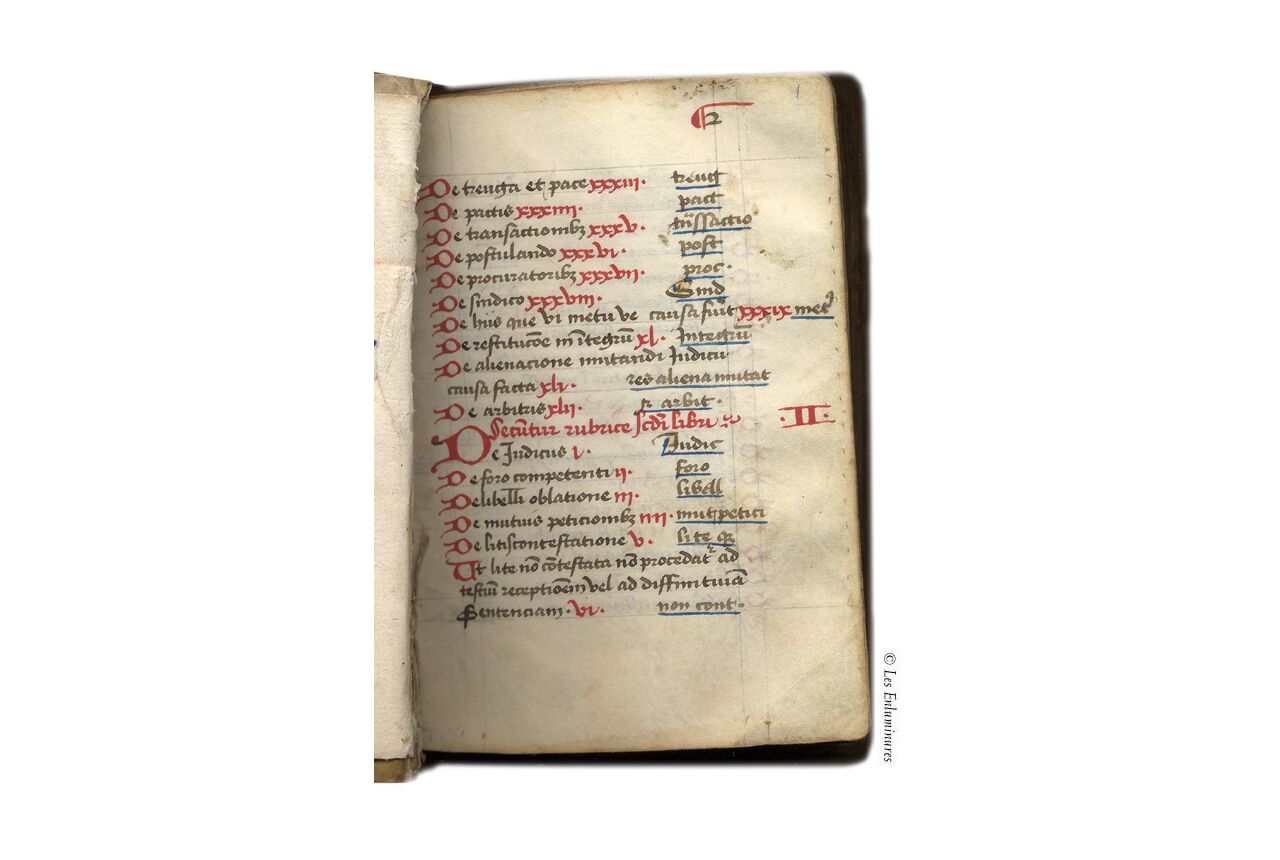 2
De treuga et pace xxxiii. treug
De pactis xxxiiii. pact
De transactiombꝫ xxxv. tn̄ssactio
De postulando xxxvi. post
De procuratoribꝫ xxxvii. proc.
De sindico xxxviii. Sind
De hiis que vi metu ve causa fiūt xxxix met
De restitucōe in ītegrū xl. Integrū
De alienacione mutandi Iudicii
causa facta xli. res aliena mutat
De arbitris xlii. arbit.
Secūtur rubrice scdī libri .II.
De Iudiciis i. Iudic
De foro competenti ii. foro
De libelli oblatione iii. libell
De mutuis peticionibꝫ iiii. mut petici
De litiscontestatione v. lite
Ut lite nō cōtestata nō procedat ad
testiū receptiōem vel ad diffinitiuā
Sentenciam. vi. non cont.
© Les Enluminures